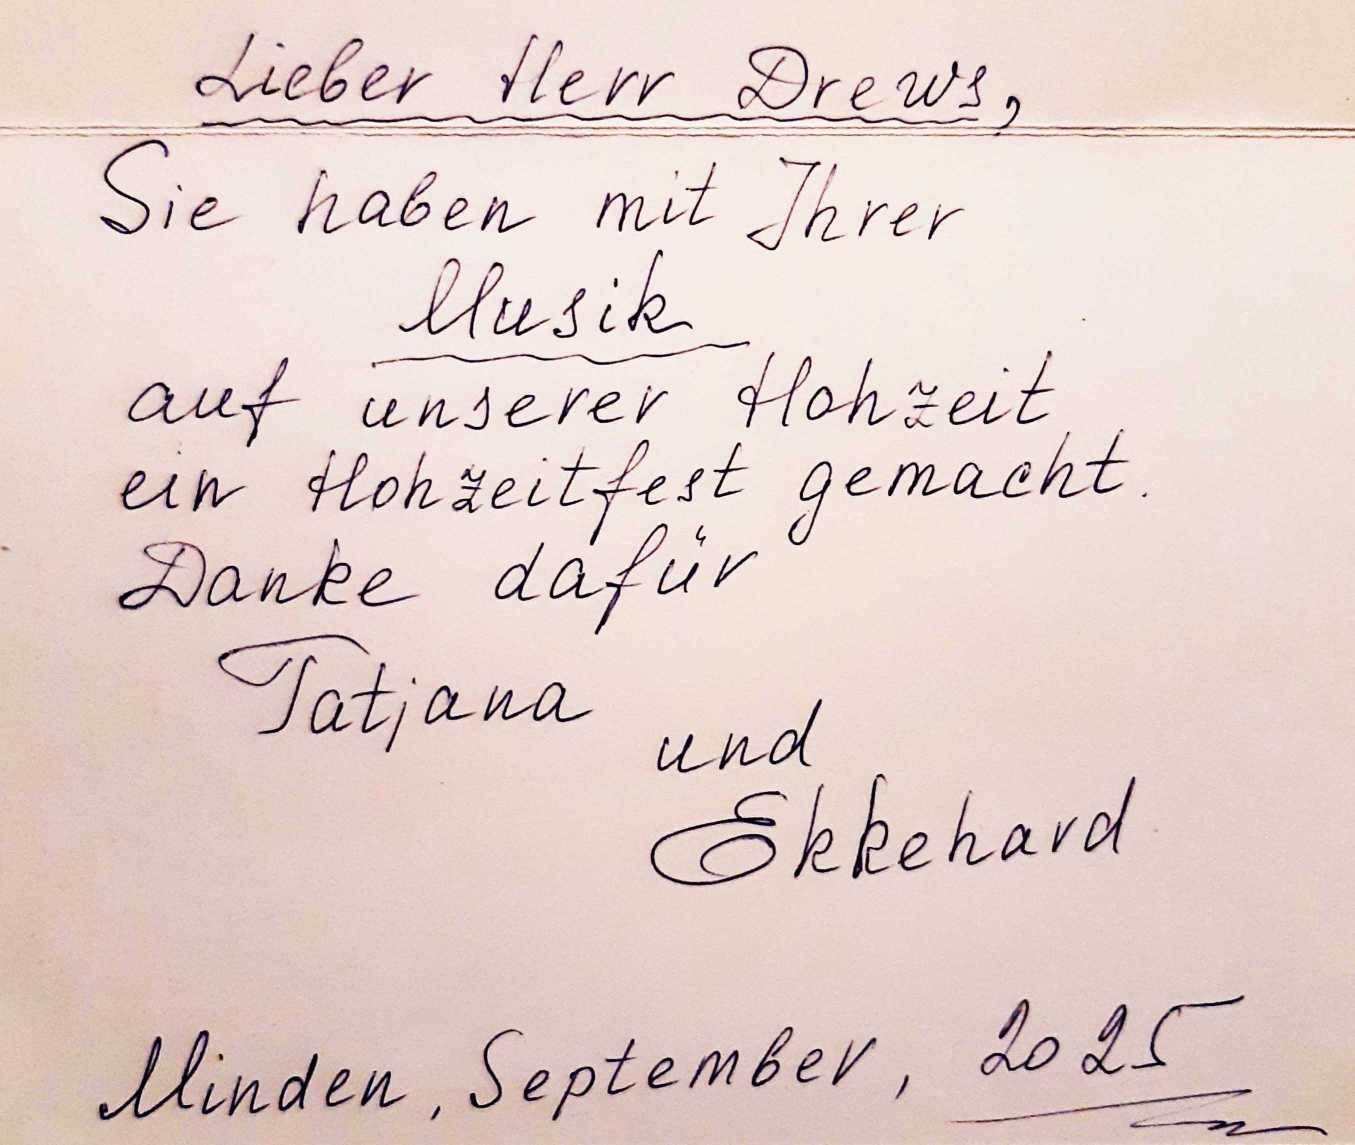 Lieber Herr Drews,
Sie haben mit Ihrer
Musik
auf unserer Hohzeit
ein Hohzeitfest gemacht.
Danke dafür
Tatjana
und
Ekkehard
Minden, September, 2025